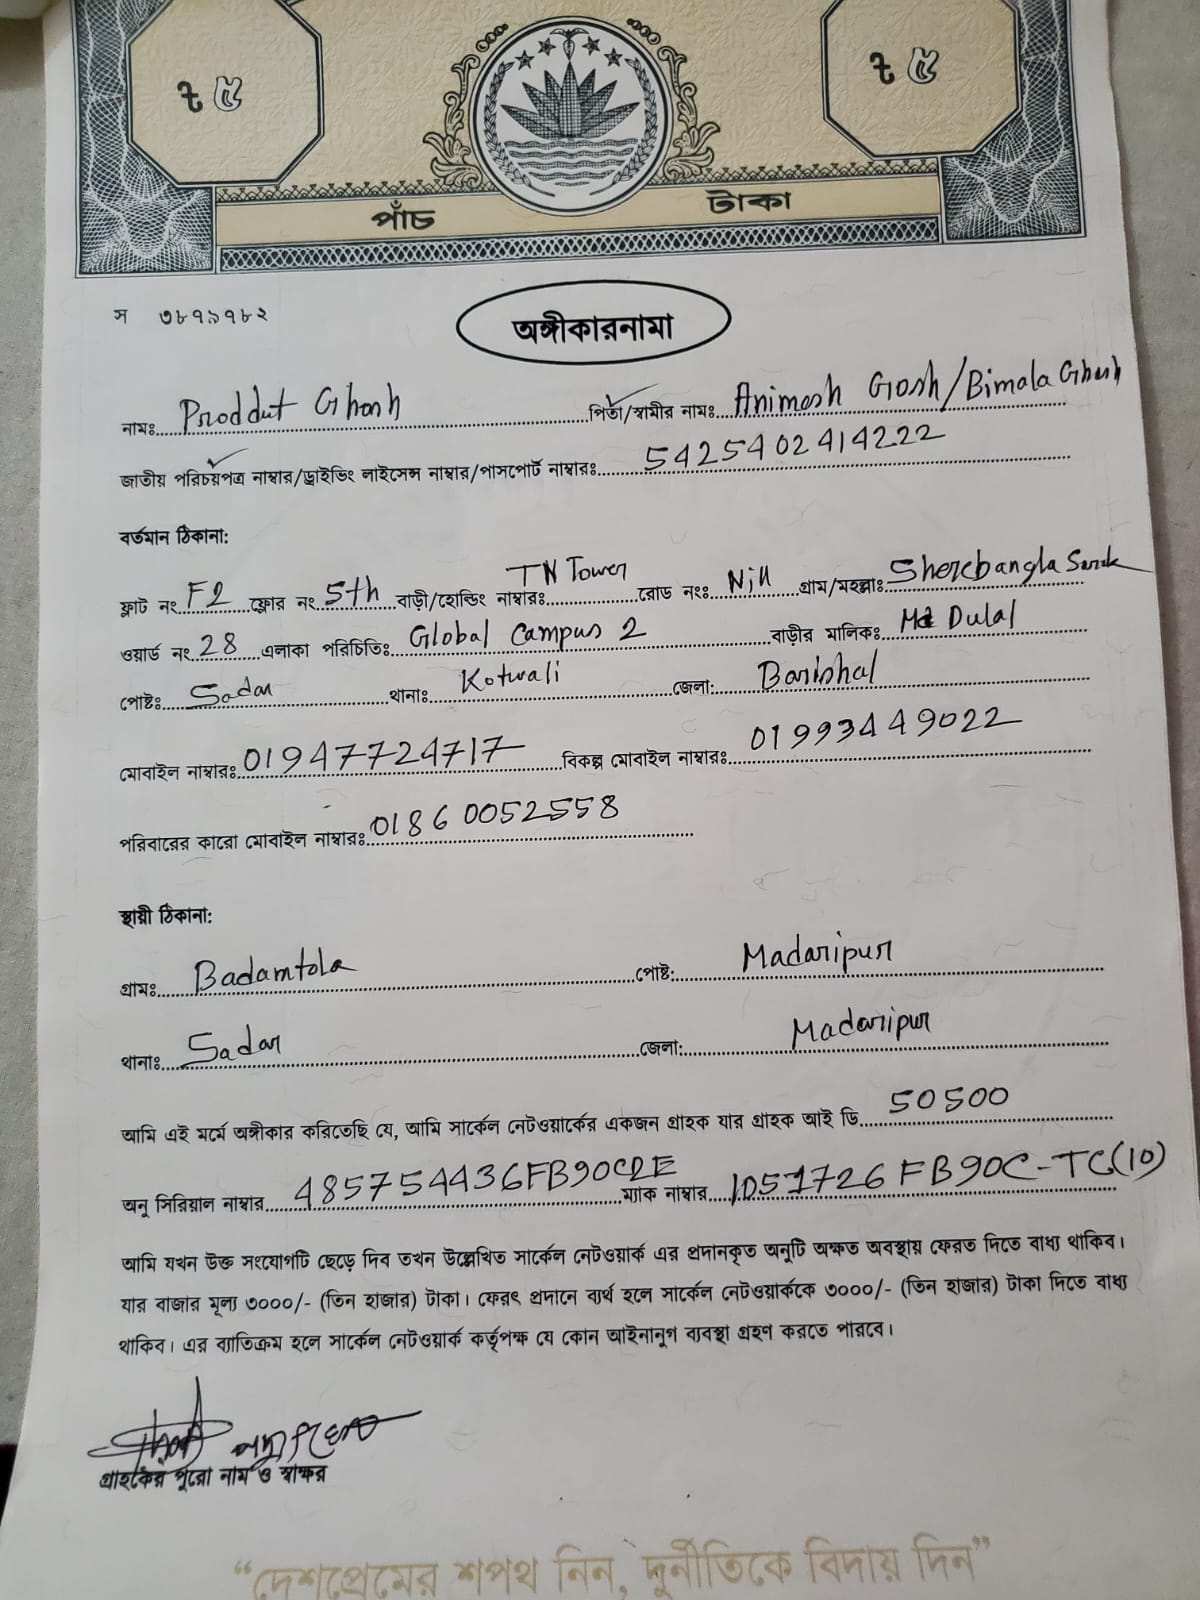 ৳ ৫
৳ ৫
পাঁচ টাকা
স ৩৮৭৯৭৮২
অঙ্গীকারনামা
নামঃ Proddut Ghosh পিতা/স্বামীর নামঃ Animesh Gosh/Bimala Ghosh
জাতীয় পরিচয়পত্র নাম্বার/ড্রাইভিং লাইসেন্স নাম্বার/পাসপোর্ট নাম্বারঃ 5425402414222
বর্তমান ঠিকানা:
ফ্লাট নং F2 ফ্লোর নং 5th বাড়ী/হোল্ডিং নাম্বারঃ TN Tower রোড নংঃ Nill গ্রাম/মহল্লাঃ Sherebangla Sarak
ওয়ার্ড নং 28 এলাকা পরিচিতিঃ Global Campus 2 বাড়ীর মালিকঃ Md Dulal
পোষ্টঃ Sadar থানাঃ Kotwali জেলা: Barishal
মোবাইল নাম্বারঃ 01947724717 বিকল্প মোবাইল নাম্বারঃ 01993449022
পরিবারের কারো মোবাইল নাম্বারঃ 01860052558
স্থায়ী ঠিকানা:
গ্রামঃ Badamtola পোষ্ট: Madaripur
থানাঃ Sadar জেলা: Madaripur
আমি এই মর্মে অঙ্গীকার করিতেছি যে, আমি সার্কেল নেটওয়ার্কের একজন গ্রাহক যার গ্রাহক আই ডি 50500
অনু সিরিয়াল নাম্বার 485754436FB90C2E ম্যাক নাম্বার 1051726FB90C-TC(10)
আমি যখন উক্ত সংযোগটি ছেড়ে দিব তখন উল্লেখিত সার্কেল নেটওয়ার্ক এর প্রদানকৃত অনুটি অক্ষত অবস্থায় ফেরত দিতে বাধ্য থাকিব।
যার বাজার মূল্য ৩০০০/- (তিন হাজার) টাকা। ফেরৎ প্রদানে ব্যর্থ হলে সার্কেল নেটওয়ার্ককে ৩০০০/- (তিন হাজার) টাকা দিতে বাধ্য
থাকিব। এর ব্যাতিক্রম হলে সার্কেল নেটওয়ার্ক কর্তৃপক্ষ যে কোন আইনানুগ ব্যবস্থা গ্রহণ করতে পারবে।
গ্রাহকের পুরো নাম ও স্বাক্ষর
“দেশপ্রেমের শপথ নিন, দুর্নীতিকে বিদায় দিন”